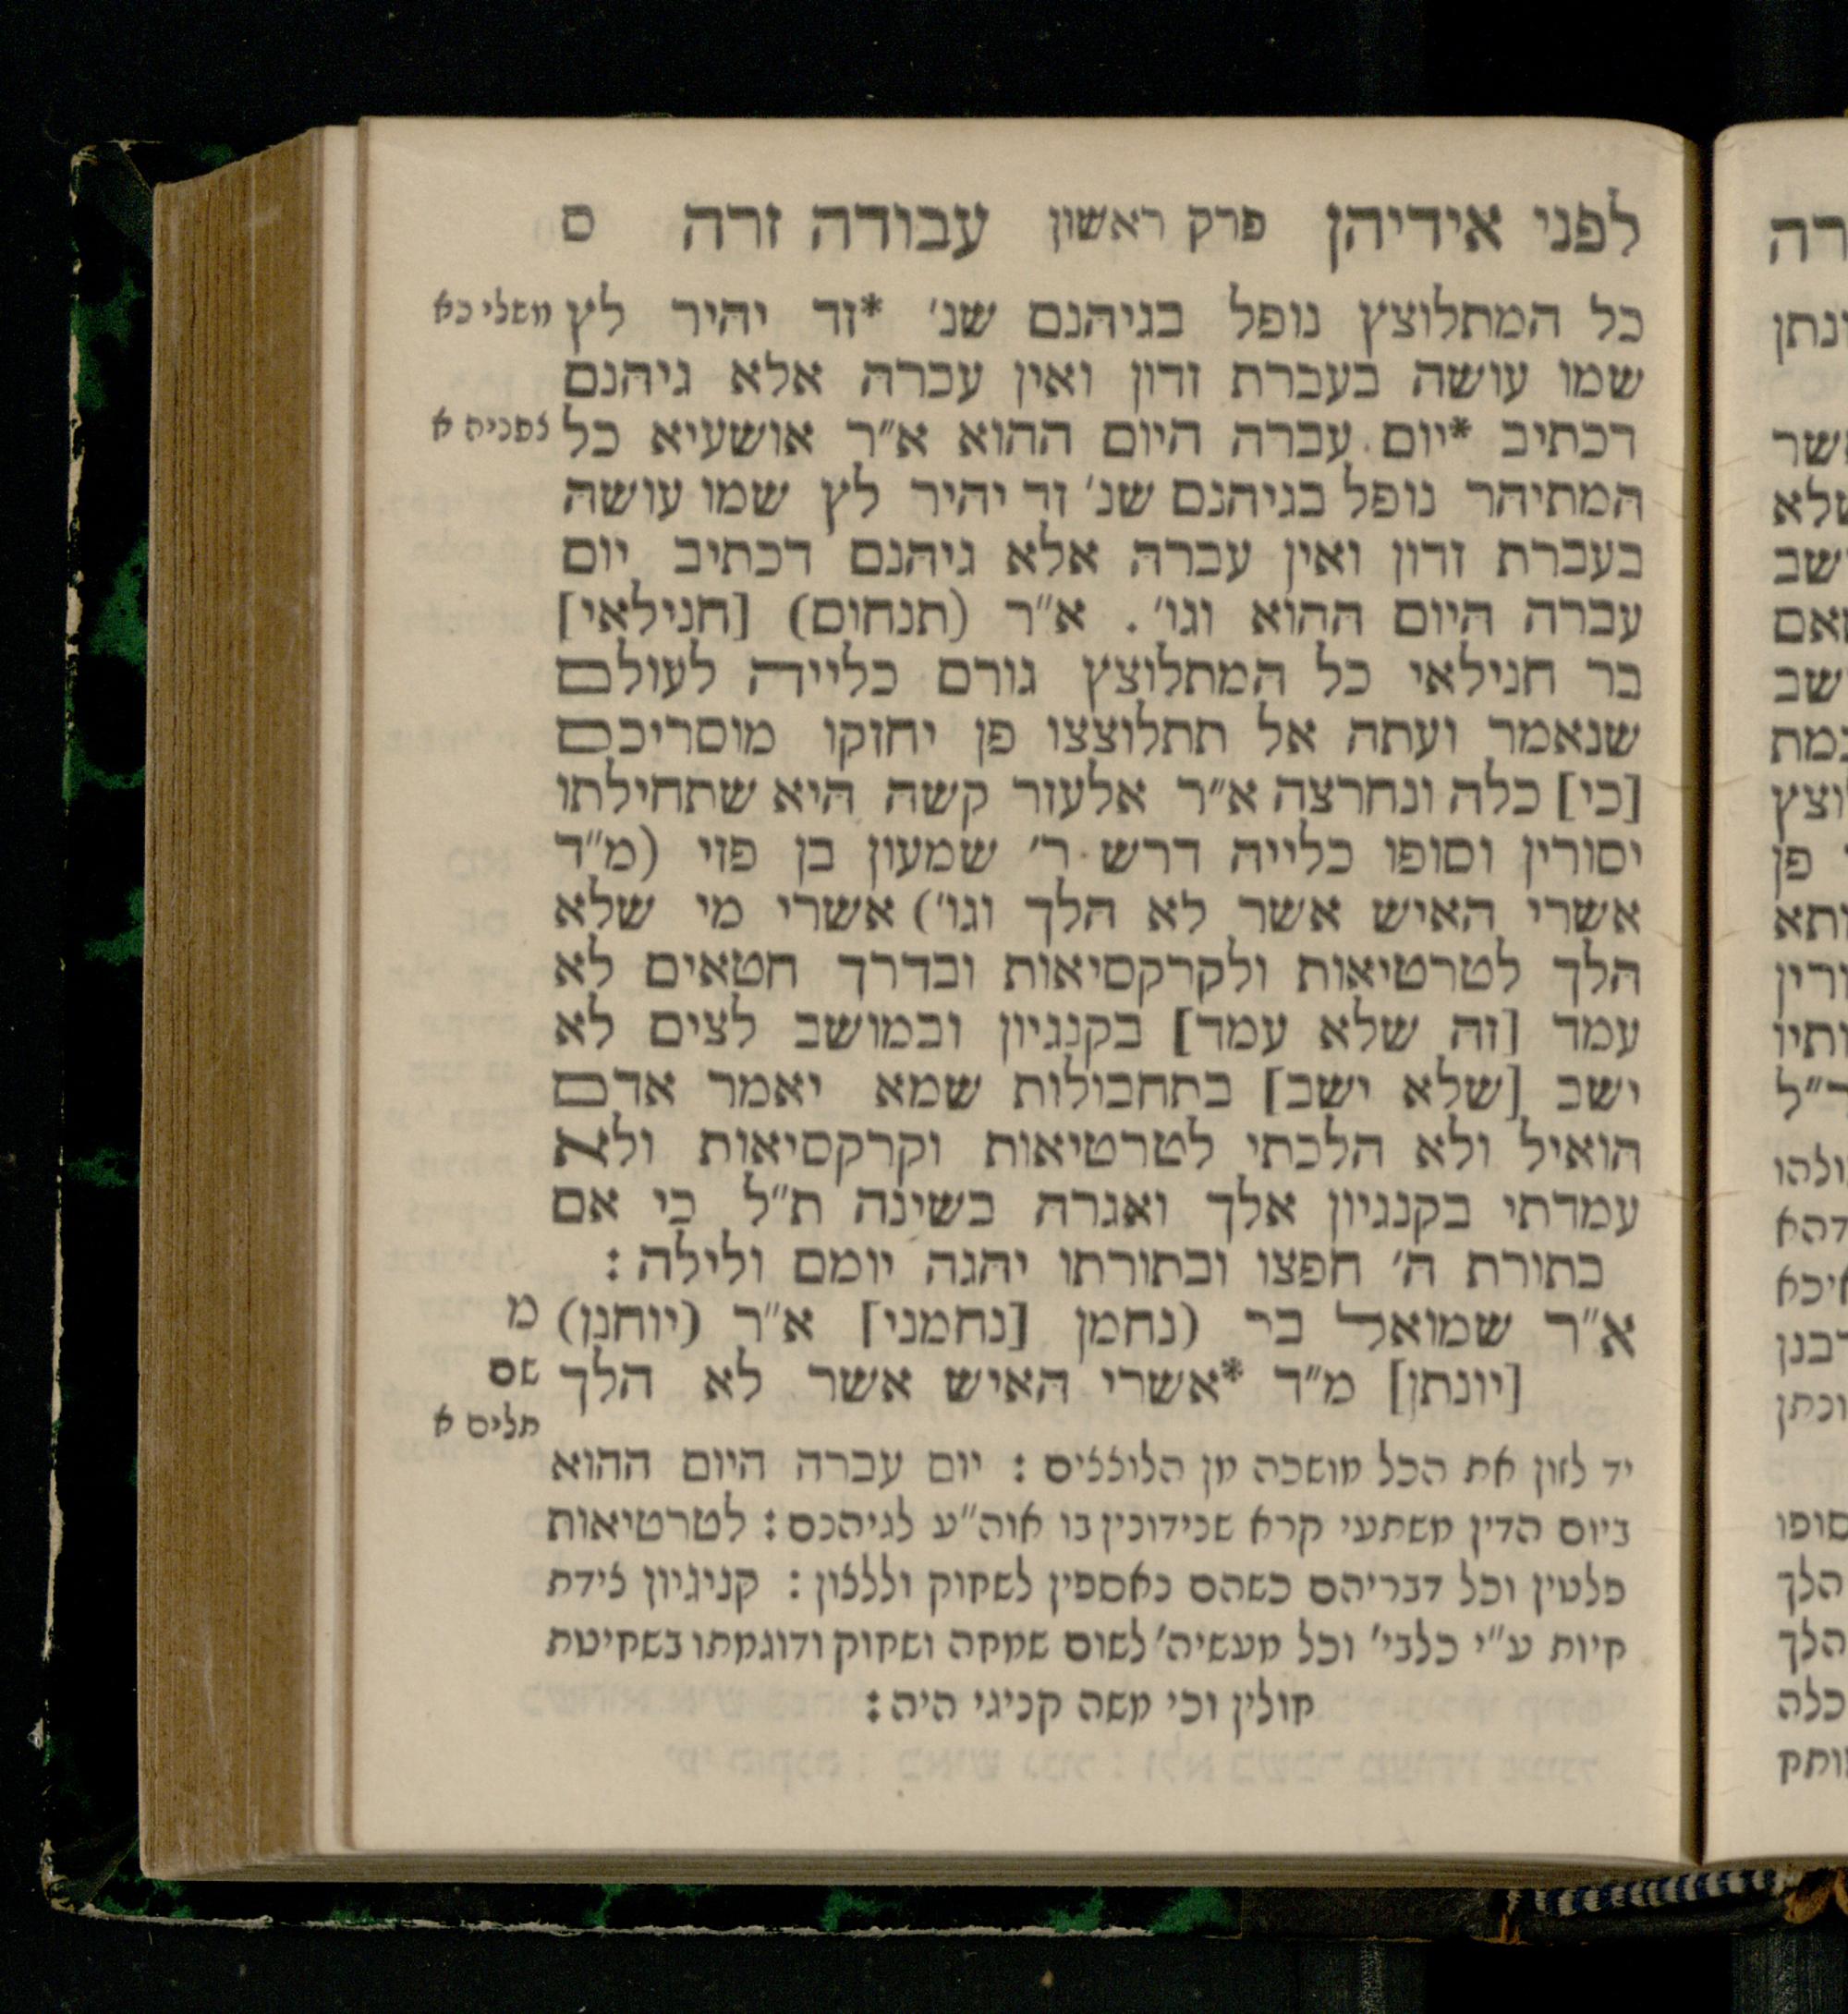 לפני אידיהן פרק ראשון עבודה זרה ס
כל המתלוצץ נופל בגיהנם שנ' *זד יהיר לץ משלי כא
שמו עושה בעברת זדון ואין עברה אלא גיהנם
דכתיב *יום עברה היום ההוא א״ר אושעיא כל צפניה א
המתיהר נופל בגיהנם שנ' זד יהיר לץ שמו עושה
בעברת זדון ואין עברה אלא גיהנם דכתיב יום
עברה היום ההוא וגו'. א״ר (תנחום) [חנילאי]
בר חנילאי כל המתלוצץ גורם כלייה לעולם
שנאמר ועתה אל תתלוצצו פן יחזקו מוסריכם
[כי] כלה ונחרצה א״ר אלעזר קשה היא שתחילתו
יסורין וסופו כלייה דרש ר' שמעון בן פזי (מ״ד
אשרי האיש אשר לא הלך וגו') אשרי מי שלא
הלך לטרטיאות ולקרקסיאות ובדרך חטאים לא
עמד [זה שלא עמד] בקנגיון ובמושב לצים לא
ישב [שלא ישב] בתחבולות שמא יאמר אדם
הואיל ולא הלכתי לטרטיאות וקרקסיאות ולא
עמדתי בקנגיון אלך ואגרה בשינה ת״ל כי אם
בתורת ה' חפצו ובתורתו יהגה יומם ולילה:
א״ר שמואל בר (נחמן [נחמני] א״ר (יוחנן) מ
[יונתן] מ״ד *אשרי האיש אשר לא הלך שם
תלים א
יד לזון את הכל מושכה מן הלוצצים: יום עברה היום ההוא
ביום הדין משתעי קרא שנידונין בו אוה״ע לגיהנם: לטרטיאות
פלטין וכל דבריהם כשהם נאספין לשחוק וללצון: קניגיון צידת
חיות ע״י כלבי' וכל מעשיה' לשום שמחה ושחוק ודוגמתו בשחיטת
חולין וכי משה קניגי היה:
רה
ונתן
אשר
שלא
ישב
שאם
ישב
פן
הלך
הלך
כלה